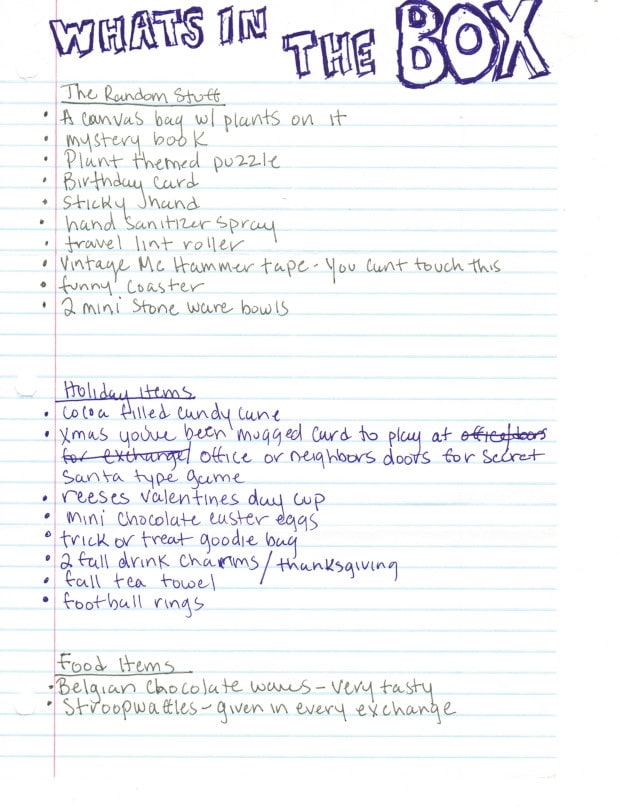 WHATS IN THE BOX
The Random Stuff
• A canvas bag w/ plants on it
• mystery book
• Plant themed puzzle
• Birthday card
• Sticky hand
• hand sanitizer spray
• travel lint roller
• Vintage Mc Hammer tape - You cant touch this
• funny coaster
• 2 mini Stone ware bowls
Holiday Items
• Cocoa filled candy cane
• Xmas you've been mugged card to play at office/doors
for exchange/ office or neighbors doors for secret
Santa type game
• reeses valentines day cup
• mini chocolate easter eggs
• trick or treat goodie bag
• 2 fall drink charms/thanksgiving
• fall tea towel
• football rings
Food Items
• Belgian Chocolate waves - very tasty
• Stroopwaffles - given in every exchange